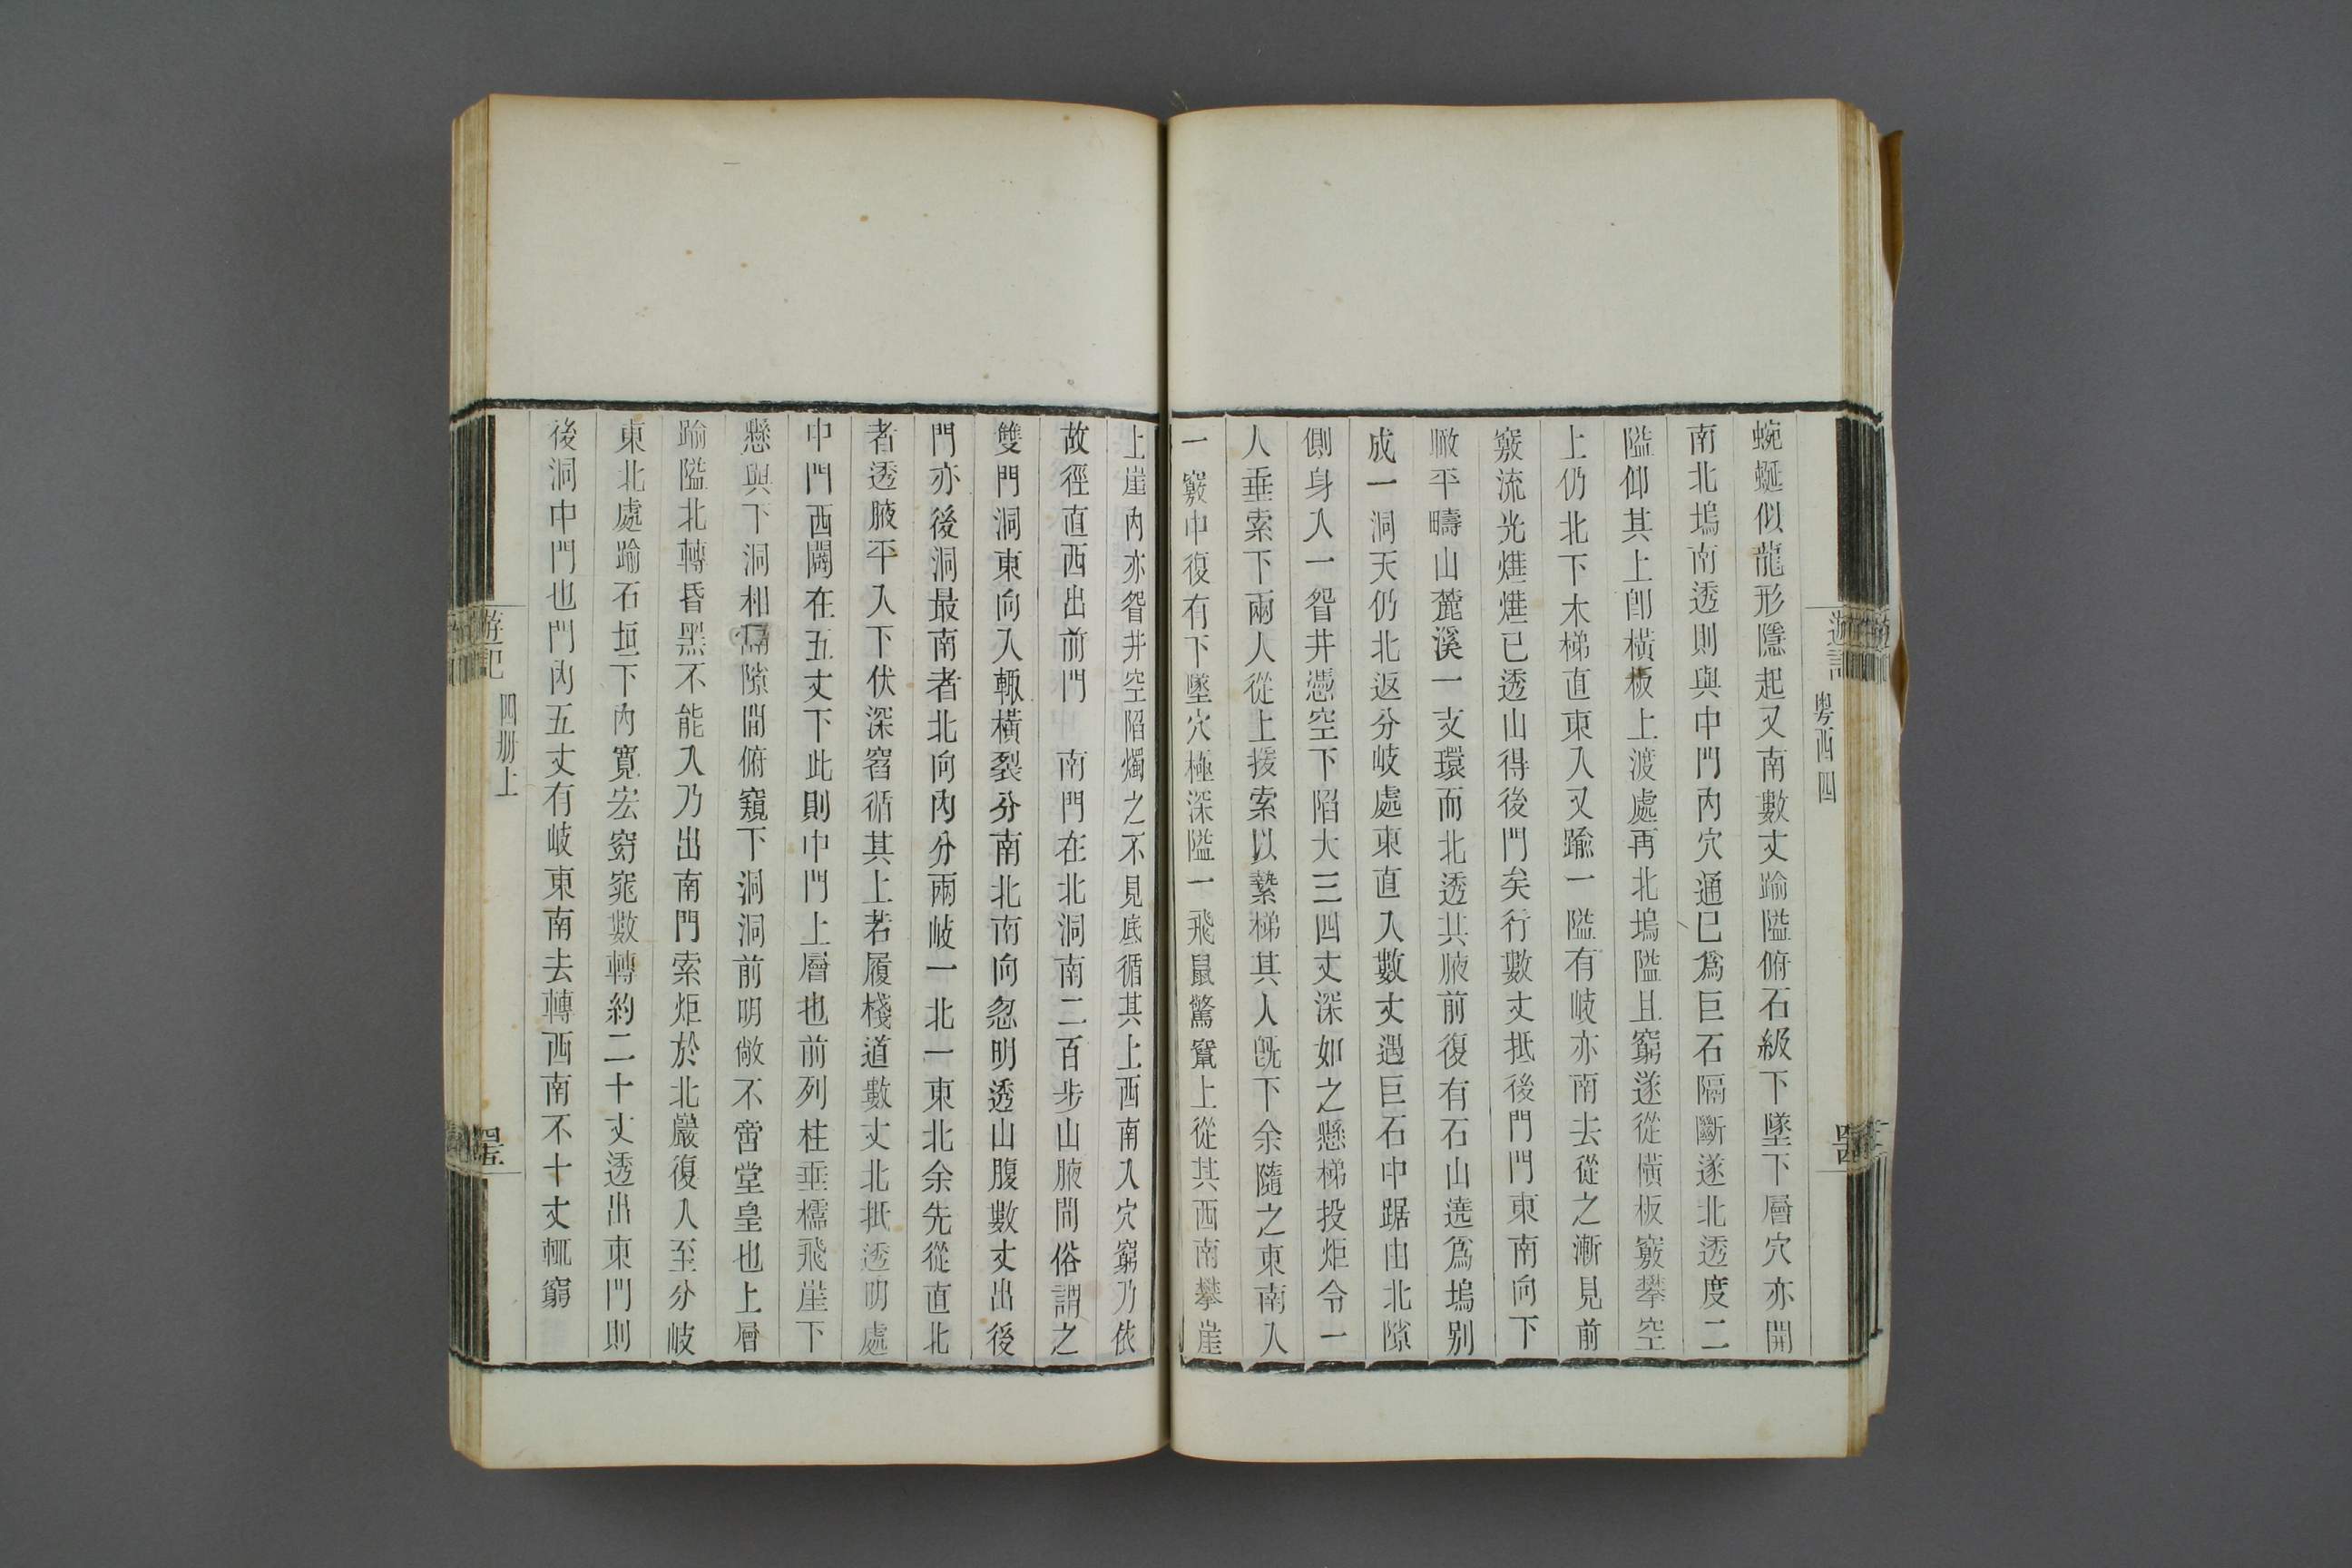 粵西四
蜿蜒似龍形隱起又南數丈踰隘俯石級下墜下層穴亦開
南北塢南透則與中門內穴通已爲巨石隔斷遂北透度二
隘仰其上卽橫板上渡處再北塢隘且窮遂從橫板竅攀空
上仍北下木梯直東入又踰一隘有岐亦南去從之漸見前
竅流光燁燁已透山得後門矣行數丈抵後門門東南向下
瞰平疇山麓溪一支環而北透其腋前復有石山遶爲塢别
成一洞天仍北返分岐處東直入數丈遇巨石中踞由北隙
側身入一眢井憑空下陷大三四丈深如之懸梯投炬令一
人垂索下兩人從上援索以縶梯其人旣下余隨之東南入
一竅中復有下墜穴極深隘一飛鼠驚竄上從其西南攀崖
上崖內亦眢井空陷燭之不見底循其上西南入穴窮乃依
故徑直西出前門　南門在北洞南二百步山腋間俗謂之
雙門洞東向入輙橫裂分南北南向忽明透山腹數丈出後
門亦後洞最南者北向內分兩岐一北一東北余先從直北
者透腋平入下伏深窞循其上若履棧道數丈北抵透明處
中門西闢在五丈下此則中門上層也前列柱垂檽飛崖下
懸與下洞相隔隙間俯窺下洞洞前明敞不啻堂皇也上層
踰隘北轉昏黑不能入乃出南門索炬於北巖復入至分岐
東北處踰石垣下內寬宏窈窕數轉約二十丈透出東門則
後洞中門也門內五丈有岐東南去轉西南不十丈輒窮
游記
四册上